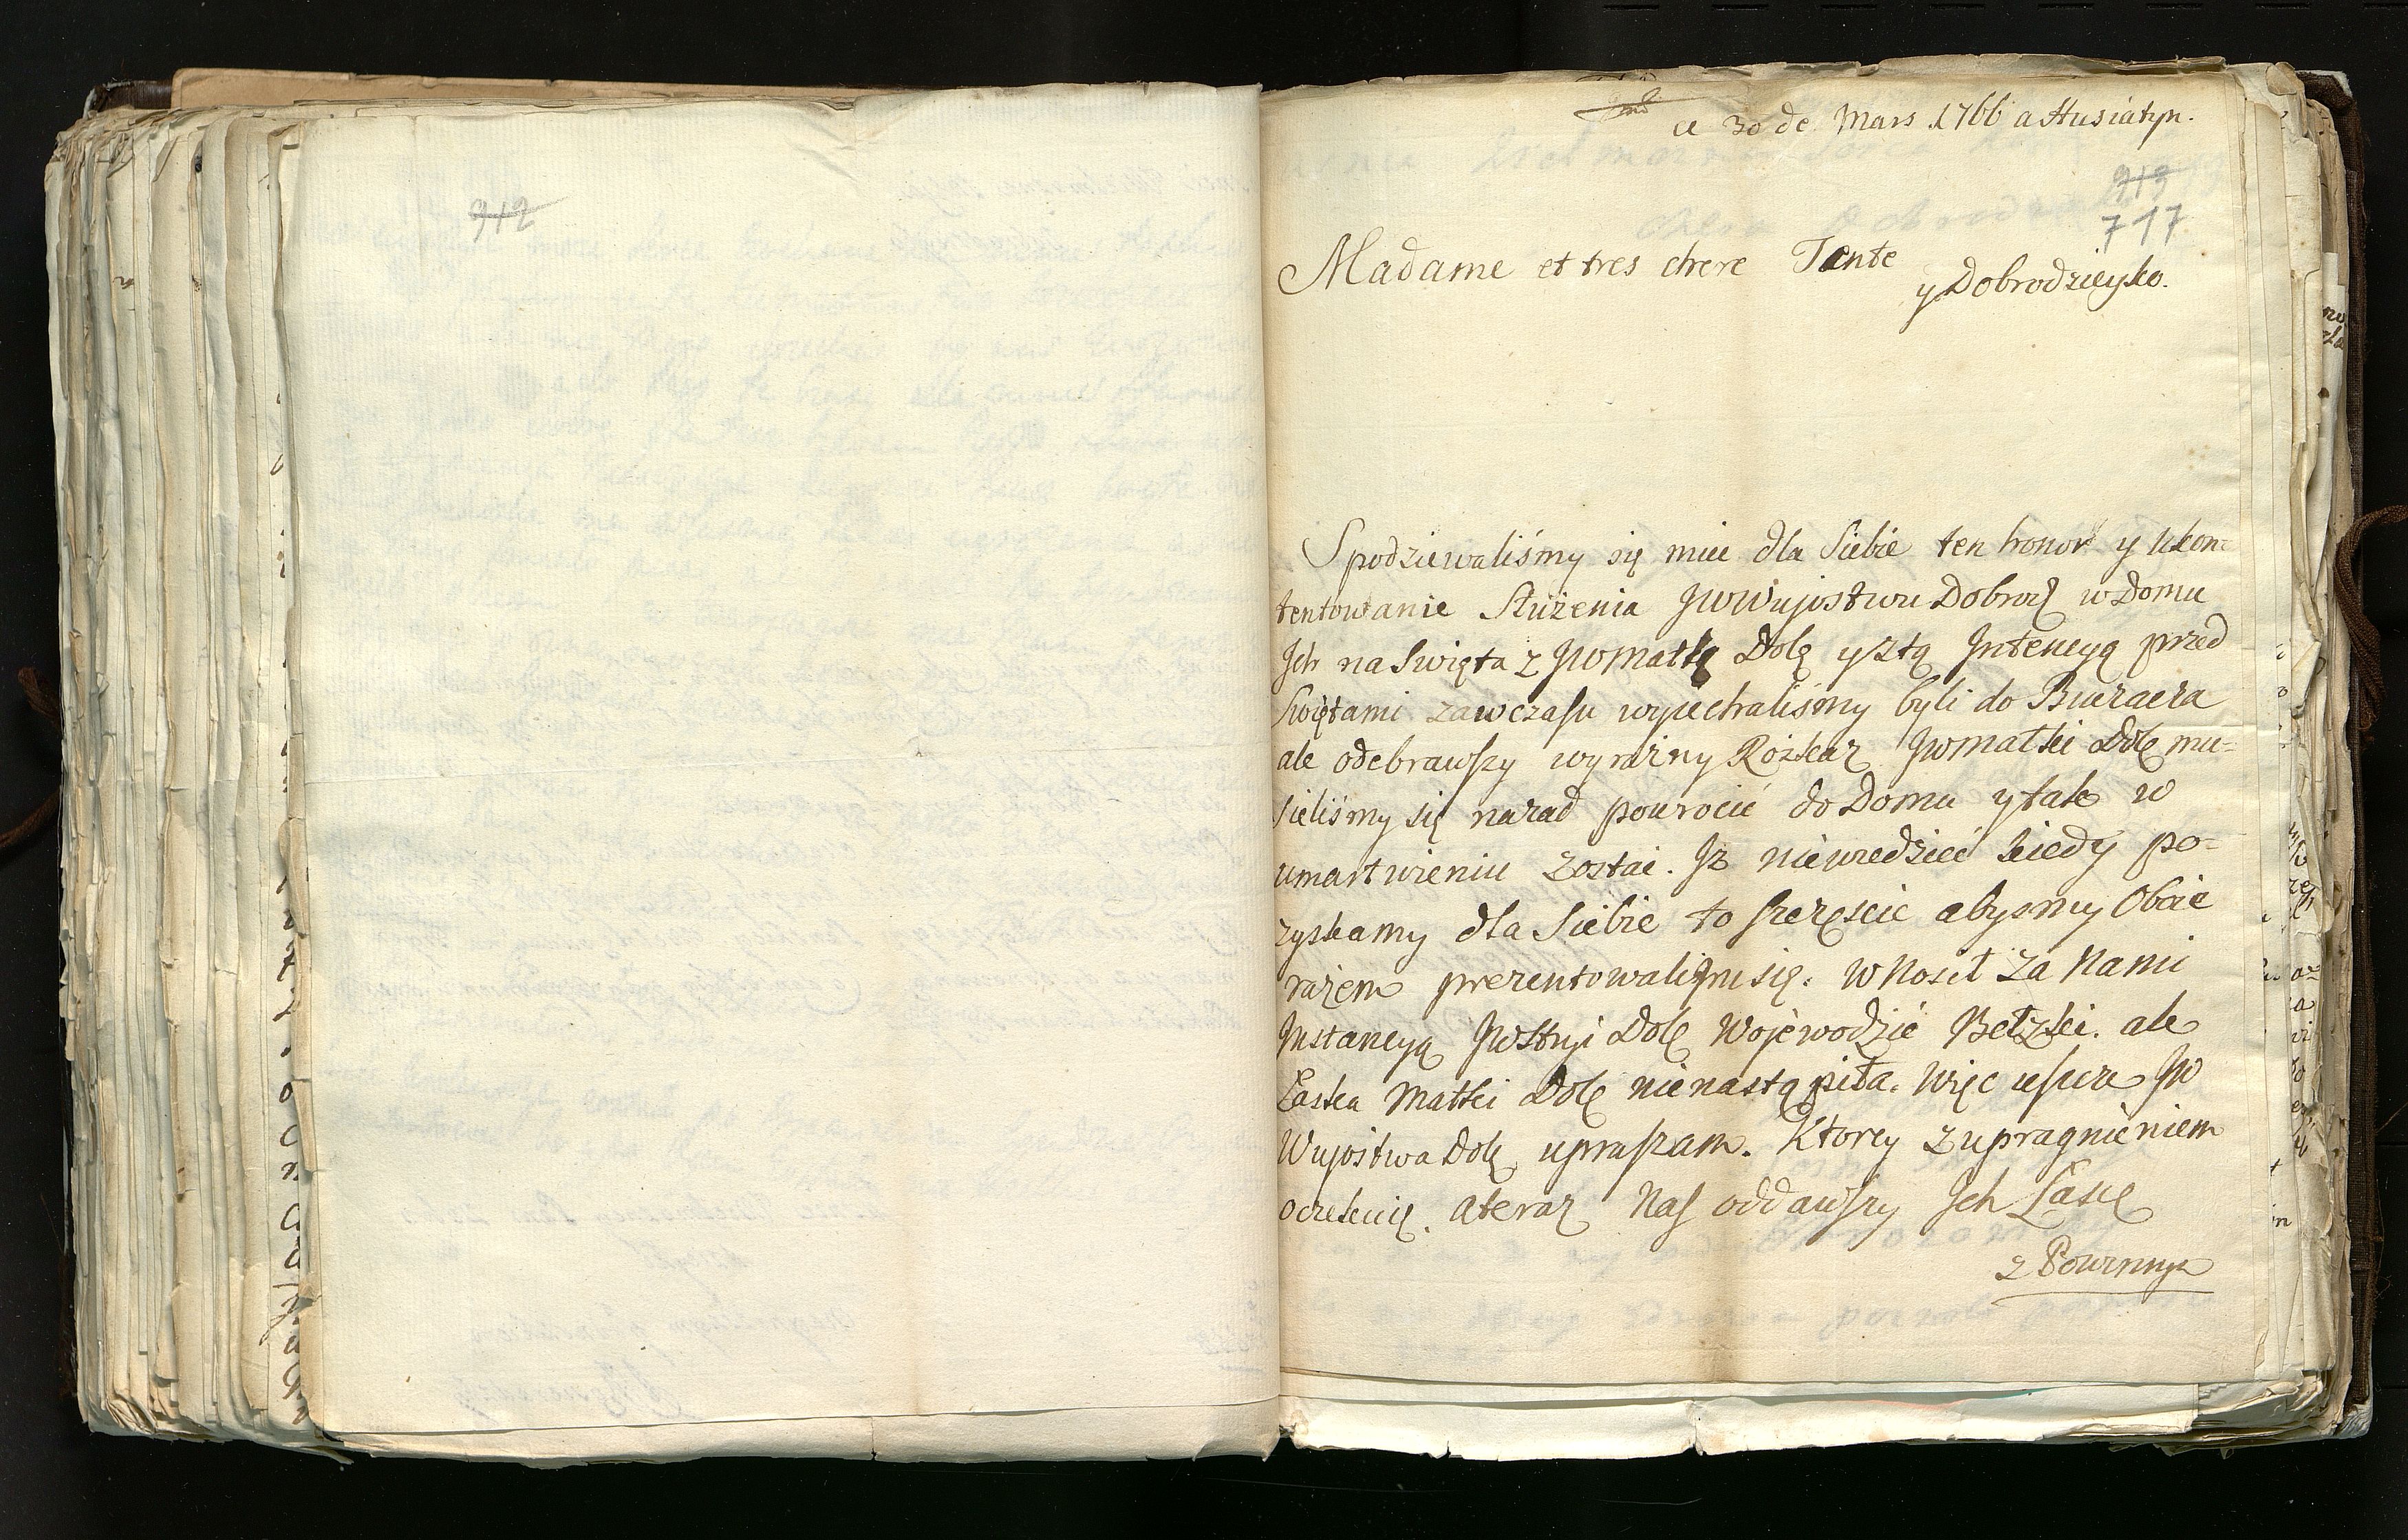 912
ce 30 de Mars 1766 a Husiatyn.
913
717
Madame et tres chere Tante
y Dobrodzieyko.
Spodziewaliśmy się miec dla Siebie ten honor y Ukon=
tentowanie Służenia JWWujostwu Dobrodz w Domu
Ich na Swięta z JWMatką Dobę y ztą Intencyą przed
Swiętami zawczasu wyiechaliśmy byli do
ale odebrawszy wyraźny Rozkaz JWMatki Dobę mu=
sieliśmy się nazad powrocić do Domu y tak w
umartwieniu zostac. Iz niewiedzieć kiedy po=
zyskamy dla Siebie to szczęscie abysmy Oboie
razem prezentowaliśmy się. Wnosił za Nami
Instancyą JWStryi Dobę Wojewodzic Bełzki. ale
Łaska Matki Dobę nienastąpiła. Więc JW
Wujostwa Dobę upraszam. Ktorey z upragnieniem
oczekuię. a teraz Nas oddawszy Ich Łasce
z Powinnym